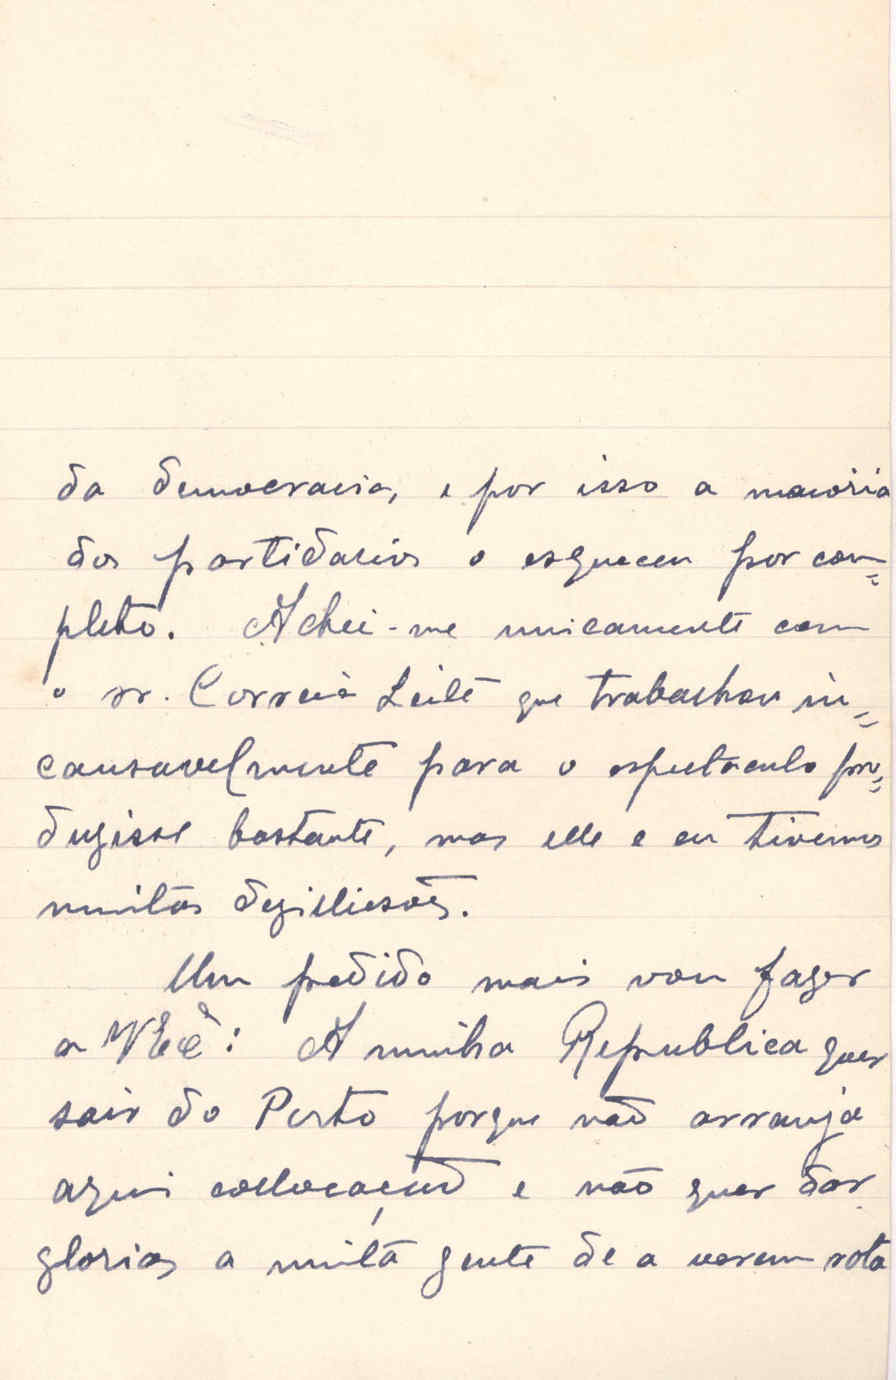 da democracia, e por isso a maioria
dos partidarios o esqueceu por com=
pleto. Achei-me unicamente com
o sr. Correia Leite que trabalhou in=
cansavelmente para o espectaculo pro=
duzisse bastante, mas elle e eu tivemos
muitas dezillusões.
Um pedido mais vou fazer
a VEx.ª: A minha Republica quer
sair do Porto porque não arranja
aqui collocação e não quer dar
glorias a muita gente de a verem rota